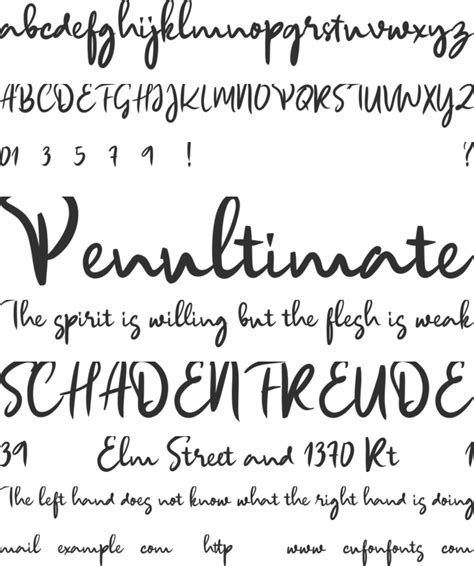 abcdefghijklmnopqrstuvwxyz
ABCDEFGHIJKLMNOPQRSTUVWXYZ
01 3 5 7 9 ! ?
Penultimate
The spirit is willing but the flesh is weak
SCHADENFREUDE
39 Elm Street and 1370 Rt 1
The left hand does not know what the right hand is doing
mail example com http www cufonfonts com